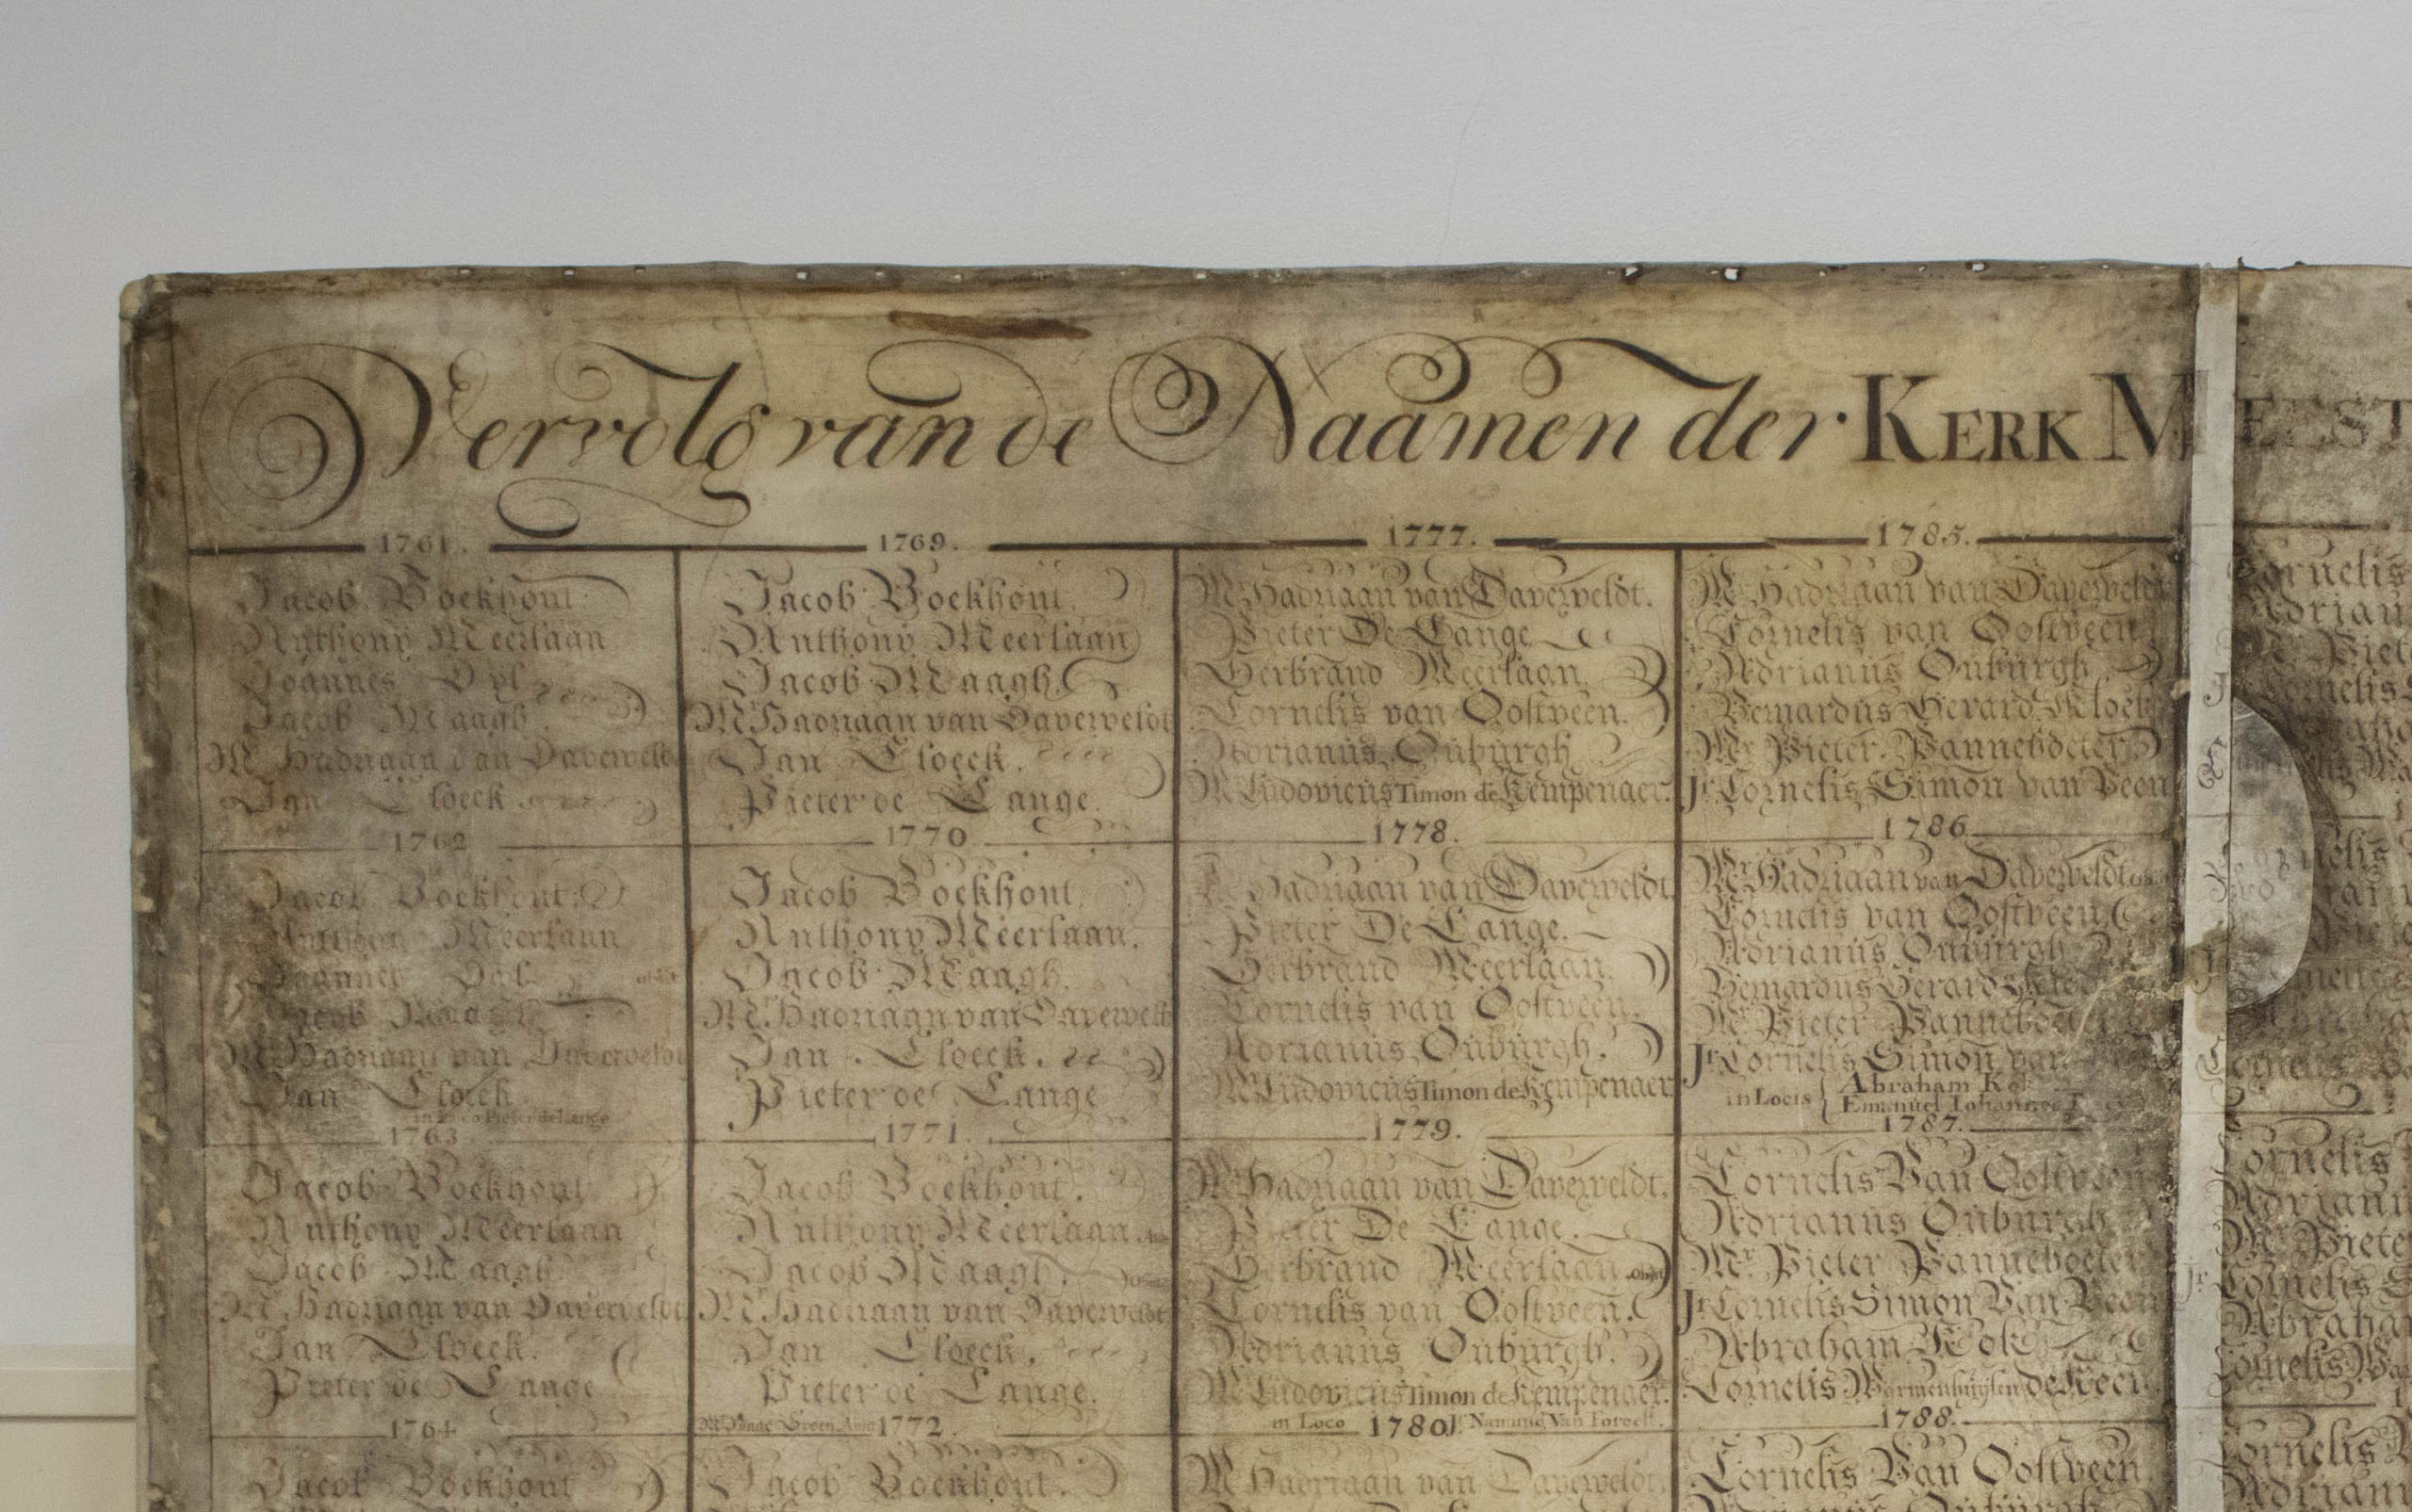 Vervolg van de Naamen der KERK MEEST
1761.
Jacob Boekhout
Anthony Meerlaan
Joannes Dyl
Jacob Maagh.
Mr. Hadriaan van Daverveldt
Jan Cloeck
1762
Jacob Boekhout.
Anthony Meerlaan
Joannes Dyl obiit
Jacob Maagh
Mr. Hadriaan van Daverveldt
Jan Cloeck
in Loco Pieter de Lange
1763
Jacob Boekhout
Anthony Meerlaan
Jacob Maagh
Mr. Hadriaan van Daverveldt
Jan Cloeck.
Pieter de Lange
1764
Jacob Boekhout
1769.
Jacob Boekhout.
Anthony Meerlaan
Jacob Maagh.
Mr. Hadriaan van Daverveldt
Jan Cloeck.
Pieter de Lange.
1770
Jacob Boekhout.
Anthony Meerlaan.
Jacob Maagh.
Mr. Hadriaan van Daverveldt
Jan Cloeck.
Pieter de Lange
1771.
Jacob Boekhout.
Anthony Meerlaan.
Jacob Maagh.
Mr. Hadriaan van Daverveldt
Jan Cloeck.
Pieter de Lange.
1772.
Jacob Boekhout.
1777.
Mr. Hadriaan van Daverveldt.
Pieter De Lange
Gerbrand Meerlaan.
Cornelis van Oostveen.
Adrianus Ouburgh
Mr. Ludovicus Timon de Kempenaer.
1778.
Mr. Hadriaan van Daverveldt.
Pieter De Lange.
Gerbrand Meerlaan.
Cornelis van Oostveen.
Adrianus Ouburgh.
Mr. Ludovicus Timon de Kempenaer
1779.
Mr. Hadriaan van Daverveldt.
Pieter De Lange.
Gerbrand Meerlaan. obiit
Cornelis van Oostveen.
Adrianus Ouburgh.
Mr. Ludovicus Timon de Kempenaer.
in Loco 1780 Jr. Nanning Van Foreest.
Mr. Hadriaan van Daverveldt.
1785.
Mr. Hadriaan van Daverveldt
Cornelis van Oostveen
Adrianus Ouburgh
Bernardus Gerard Kloek
Mr. Pieter Panneboeter
Jr. Cornelis Simon van Veen
1786
Mr. Hadriaan van Daverveldt
Cornelis van Oostveen
Adrianus Ouburgh
Bernardus Gerard
Mr. Pieter Panneboeter
Jr. Cornelis Simon van
in Locis Abraham Kok
Emanuel Johannes
1787.
Cornelis Van Oostveen
Adrianus Ouburgh
Mr. Pieter Panneboeter
Jr. Cornelis Simon Van Veen
Abraham Kok
Cornelis Warmenhuysen de Keen
1788.
Cornelis Van Oostveen
Cornelis
Adrian
Cornelis
Cornelis
Mr. Piete
Cornelis
Abraha
Cornelis